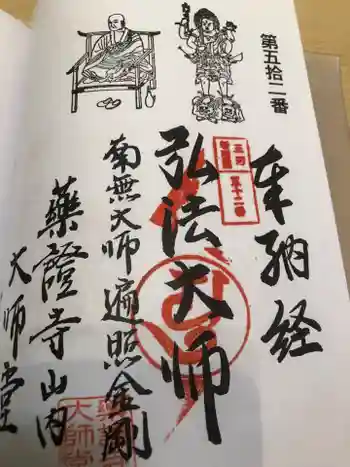 第五拾二番
奉納経
三河
新四国
五十二番
弘法大師
南無大師遍照金剛
薬證寺山内
大師堂